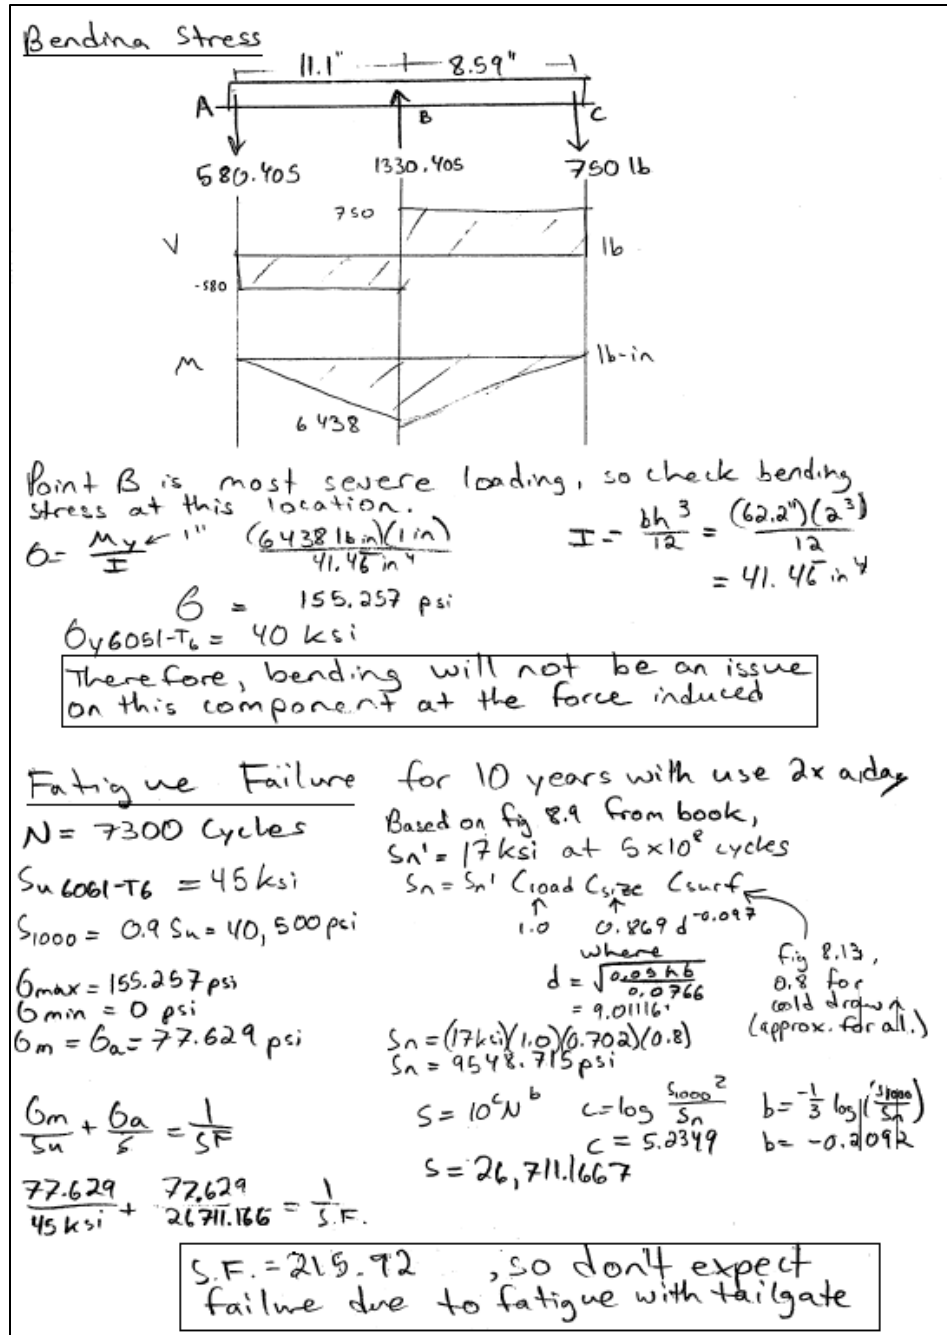 Bending Stress
11.1" 8.59"
A B C
580.405 1330.405 750 lb
750
V lb
-580
M lb-in
6438
Point B is most severe loading, so check bending
stress at this location.
σ = My/I ← 1" (6438 lb in)(1 in)/41.46 in⁴
I = bh³/12 = (62.2")(2³)/12
= 41.46 in⁴
σ = 155.257 psi
σy 6061-T6 = 40 ksi
Therefore, bending will not be an issue
on this component at the force induced
Fatigue Failure for 10 years with use 2x a day
N = 7300 Cycles
Su 6061-T6 = 45 ksi
S1000 = 0.9 Su = 40,500 psi
σmax = 155.257 psi
σmin = 0 psi
σm = σa = 77.629 psi
σm/Su + σa/S = 1/SF
77.629/45 ksi + 77.629/26711.166 = 1/S.F.
Based on fig 8.9 from book,
Sn' = 17 ksi at 5x10⁸ cycles
Sn = Sn' Cload Csize Csurf
1.0 0.869 d^-0.097
where
d = √(0.05hb/0.0766)
= 9.01116"
fig 8.13,
0.8 for
cold drawn
(approx. for al.)
Sn = (17ksi)(1.0)(0.702)(0.8)
Sn = 9548.715 psi
S = 10^c N^b c = log S1000²/Sn b = -1/3 log(S1000/Sn)
c = 5.2349 b = -0.2092
S = 26,711.1667
S.F. = 215.92, so don't expect
failure due to fatigue with tailgate